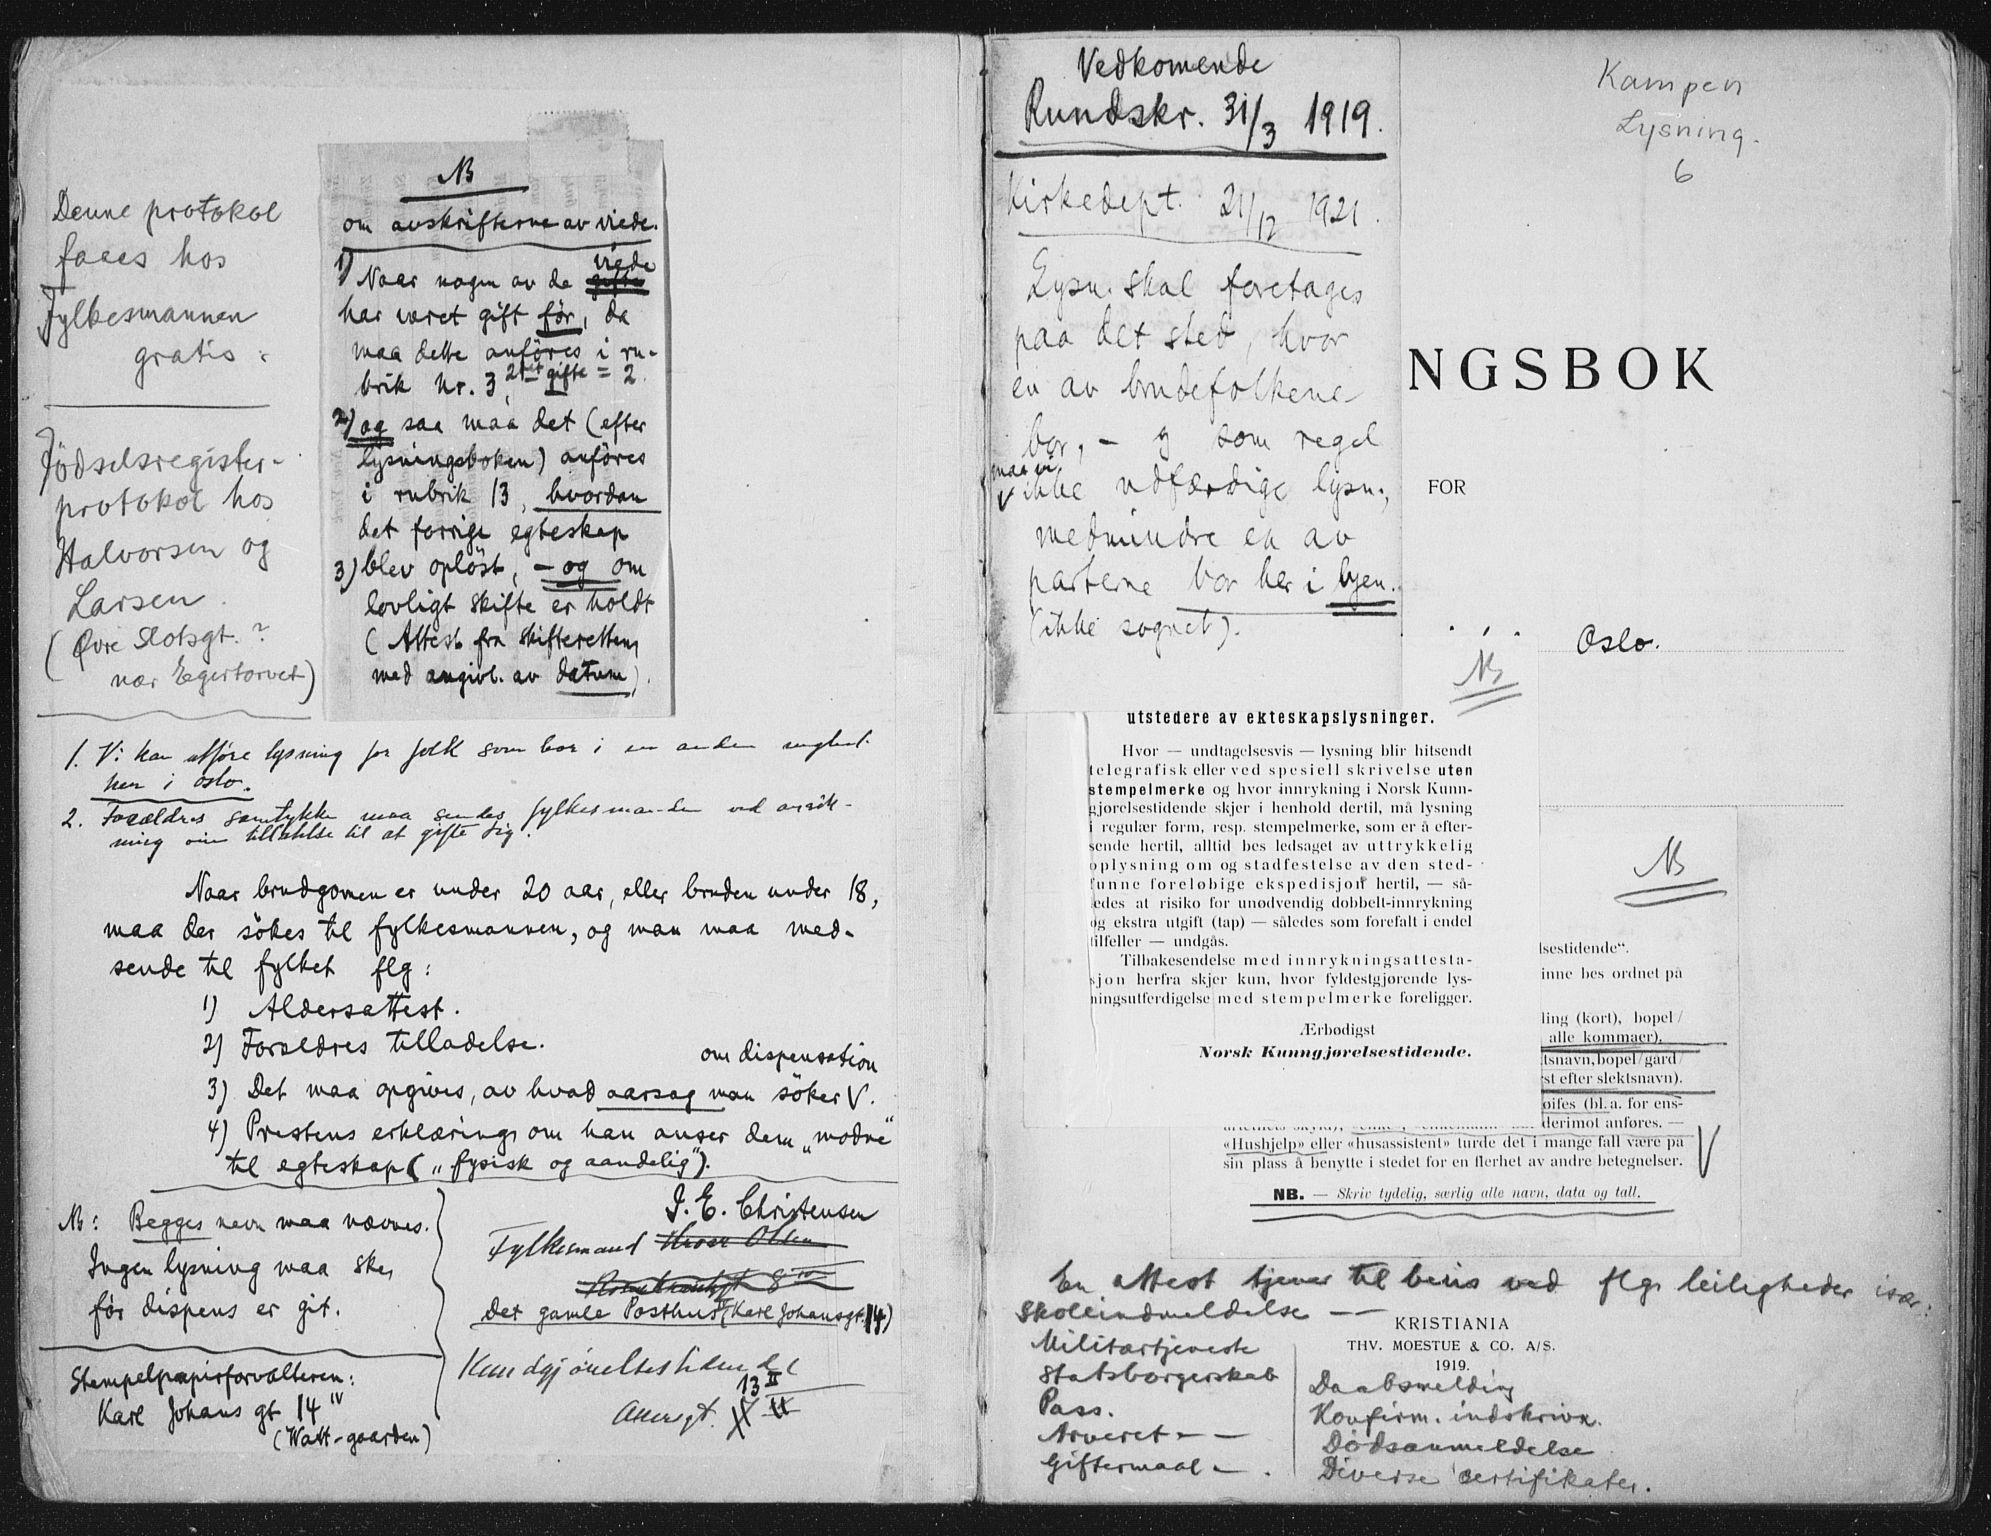 Denne protokol
faaes hos
Fylkesmannen
gratis.
Födselsregister-
protokol hos
Halvorsen og
Larsen.
(Øvre Slotsgt. ?
nær Egertorvet)
NB
om avskrifterne av viede.
1) Naar nogen av de gifte viede
har været gift før, da
maa dette anföres i ru-
brik nr. 3, 2det gifte = 2.
2) og saa maa det (efter
lysningsboken) anföres
i rubrik 13, hvordan
det forrige egteskap
3) blev oplöst, – og om
lovligt skifte er holdt
(Attest fra skifteretten
med angivl. av datum).
1. Vi kan utföre lysning for folk som bor i en anden menighet
her i Oslo.
2. Forældres samtykke maa sendes fylkesmanden ved ansök-
ning om tilladelse til at gifte sig.
Naar brudgomen er under 20 aar, eller bruden under 18,
maa der sökes til fylkesmannen, og man maa med-
sende til fylket flg:
1) Aldersattest.
2) Forældres tilladelse.
om dispensation
3) Det maa opgives, av hvad aarsag man söker V.
4) Prestens erklæring om han anser dem „modne“
til egteskap („fysisk og aandelig“).
NB: Begges navn maa nævnes.
Ingen lysning maa ske,
før dispens er git.
Stempelpapirforvalteren:
Karl Johans gt 14 IV
(Watt-gaarden)
J. E. Christensen
Fylkesmand Hroar Olsen
8 IV
Det gamle Posthus (Karl Johansgt. 14)
Kundgjörelsestidende
13 II
Akersgt.
Vedkomende
Rundskr. 31/3 1919.
Kirkedept. 21/12 1921.
Lysn. skal foretages
paa det sted, hvor
en av brudefolkene
bor, – og som regel
maa vi
V ikke udfærdige lysn.,
medmindre en av
parterne bor her i byen.
(ikke sognet).
Kampen
Lysning.
6
NGSBOK
FOR
Oslo.
NB
utstedere av ekteskapslysninger.
Hvor — undtagelsesvis — lysning blir hitsendt
telegrafisk eller ved spesiell skrivelse uten
stempelmerke og hvor innrykning i Norsk Kunn-
gjørelsestidende skjer i henhold dertil, må lysning
i regulær form, resp. stempelmerke, som er å efter-
sende hertil, alltid bes ledsaget av uttrykkelig
oplysning om og stadfestelse av den sted-
funne foreløbige ekspedisjon hertil, — så-
ledes at risiko for unødvendig dobbelt-innrykning
og ekstra utgift (tap) — således som forefalt i endel
tilfeller — undgås.
Tilbakesendelse med innrykningsattesta-
sjon herfra skjer kun, hvor fyldestgjørende lys-
ningsutferdigelse med stempelmerke foreligger.
Ærbødigst
Norsk Kunngjørelsestidende.
NB
lsestidende“.
inne bes ordnet på
ling (kort), bopel/
alle kommaer).
tsnavn, bopel/gård/
st efter slektsnavn).
øifes (bl. a. for ens-
derimot anføres. —
«Hushjelp» eller «husassistent» turde det i mange fall være på
sin plass å benytte i stedet for en flerhet av andre betegnelser.
V
NB. — Skriv tydelig, særlig alle navn, data og tall.
En attest tjener til bevis ved flg. leiligheder især:
Skoleindmeldelse —
Militærtjeneste
Statsborgerskab
Pass.
Arveret – –
Giftermaal – .
KRISTIANIA
THV. MOESTUE & CO. A/S.
1919.
Daabsmelding
Konfirm. indskrivn.
Dödsanmeldelse
Diverse certifikater.